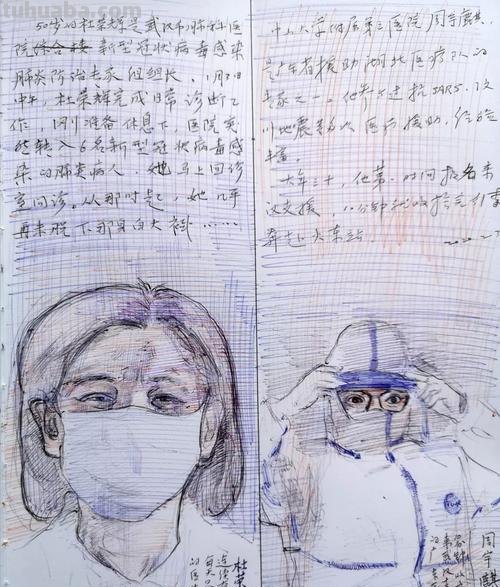 tuhuaba.com
50岁的杜荣辉是武汉市肺科医
院综合 新型冠状病毒感染
肺炎防治专家组组长。1月
中午，杜荣辉完成日常诊断工
作，刚准备休息下，医院突
然转入6名新型冠状病毒感
染的肺炎病人，她马上回诊
室问诊。从那时起，她几乎
再未脱下那身白大褂……
中山大学附属第三医院周宇麒
是广东省援助湖北医疗队的
专家之一。他参与过抗SARS、汶
川地震等多次医疗援助，经验
丰富。
大年三十，他第一时间报名来
这支援，八分钟就收拾完行李
奔赴火车站。
杜荣
连续
每天
的医
周宇麒